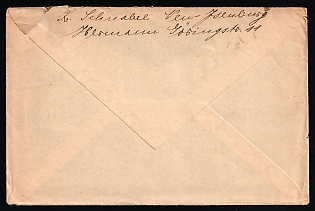 K. Schnabel Neu-Isenburg
Hermann Göringstr. 11